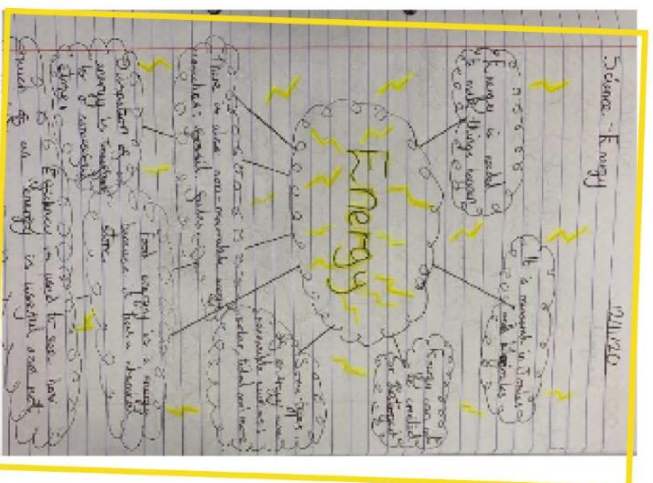 Science - Energy
Energy is needed
to make things happen
It is measured in Joules
and kilojoules
Energy
Energy can not
be created
or destroyed
Some types
of energy are
renewable such as
solar, tidal and more
There is also non-renewable energy
such as fossil
Food energy is a energy
because it has a
store
Dissipation of
energy is
to a
store
Efficiency is used to see how
much of an energy is useful and not